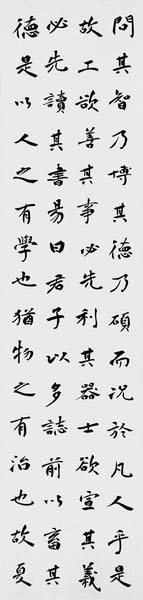 問其智乃博其德乃碩而況於凡人乎是
故工欲善其事必先利其器士欲宣其義
必先讀其書易曰君子以多誌前以畜其
德是以人之有學也猶物之有治也故夏